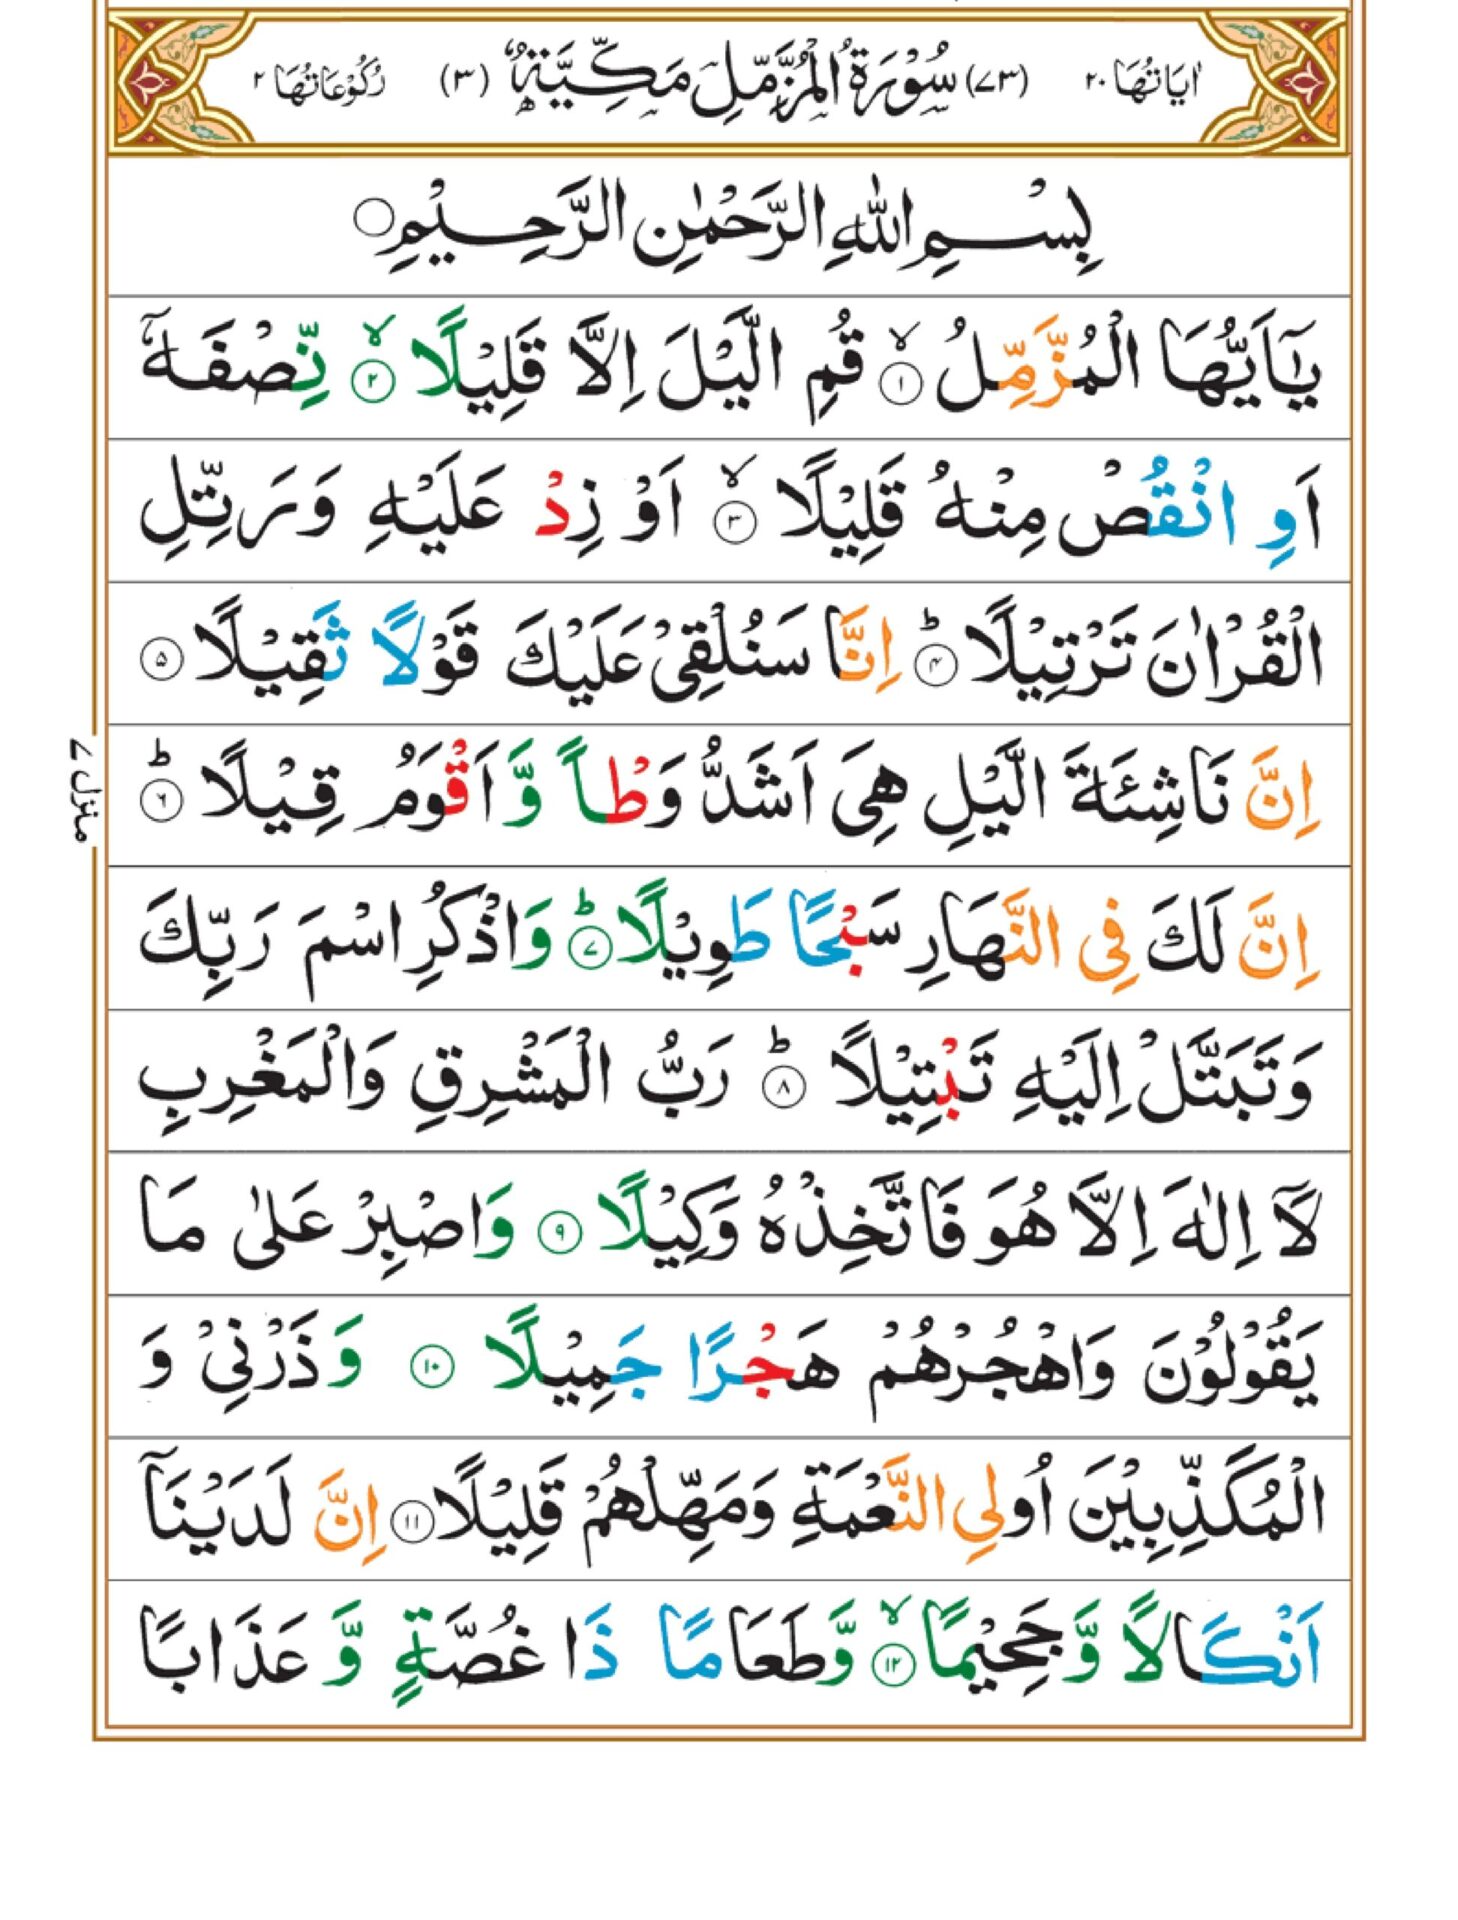 اٰیَاتُهَا ۲۰ (۷۳) سُوْرَةُ الْمُزَّمِّلِ مَكِّیَّةٌ (۳) رُكُوْعَاتُهَا ۲
بِسْمِ اللّٰهِ الرَّحْمٰنِ الرَّحِیْمِ ○
یٰۤاَیُّهَا الْمُزَّمِّلُ ۙ﴿۱﴾ قُمِ الَّیْلَ اِلَّا قَلِیْلًا ۙ﴿۲﴾ نِّصْفَهٗۤ
اَوِ انْقُصْ مِنْهُ قَلِیْلًا ۙ﴿۳﴾ اَوْ زِدْ عَلَیْهِ وَ رَتِّلِ
الْقُرْاٰنَ تَرْتِیْلًا ؕ﴿۴﴾ اِنَّا سَنُلْقِیْ عَلَیْكَ قَوْلًا ثَقِیْلًا ﴿۵﴾
اِنَّ نَاشِئَةَ الَّیْلِ هِیَ اَشَدُّ وَطْاً وَّ اَقْوَمُ قِیْلًا ؕ﴿۶﴾
اِنَّ لَكَ فِی النَّهَارِ سَبْحًا طَوِیْلًا ؕ﴿۷﴾ وَ اذْكُرِ اسْمَ رَبِّكَ
وَ تَبَتَّلْ اِلَیْهِ تَبْتِیْلًا ؕ﴿۸﴾ رَبُّ الْمَشْرِقِ وَ الْمَغْرِبِ
لَاۤ اِلٰهَ اِلَّا هُوَ فَاتَّخِذْهُ وَكِیْلًا ﴿۹﴾ وَ اصْبِرْ عَلٰی مَا
یَقُوْلُوْنَ وَ اهْجُرْهُمْ هَجْرًا جَمِیْلًا ﴿۱۰﴾ وَ ذَرْنِیْ وَ
الْمُكَذِّبِیْنَ اُولِی النَّعْمَةِ وَ مَهِّلْهُمْ قَلِیْلًا ﴿۱۱﴾ اِنَّ لَدَیْنَاۤ
اَنْكَالًا وَّ جَحِیْمًا ۙ﴿۱۲﴾ وَّ طَعَامًا ذَا غُصَّةٍ وَّ عَذَابًا
منزل ۷